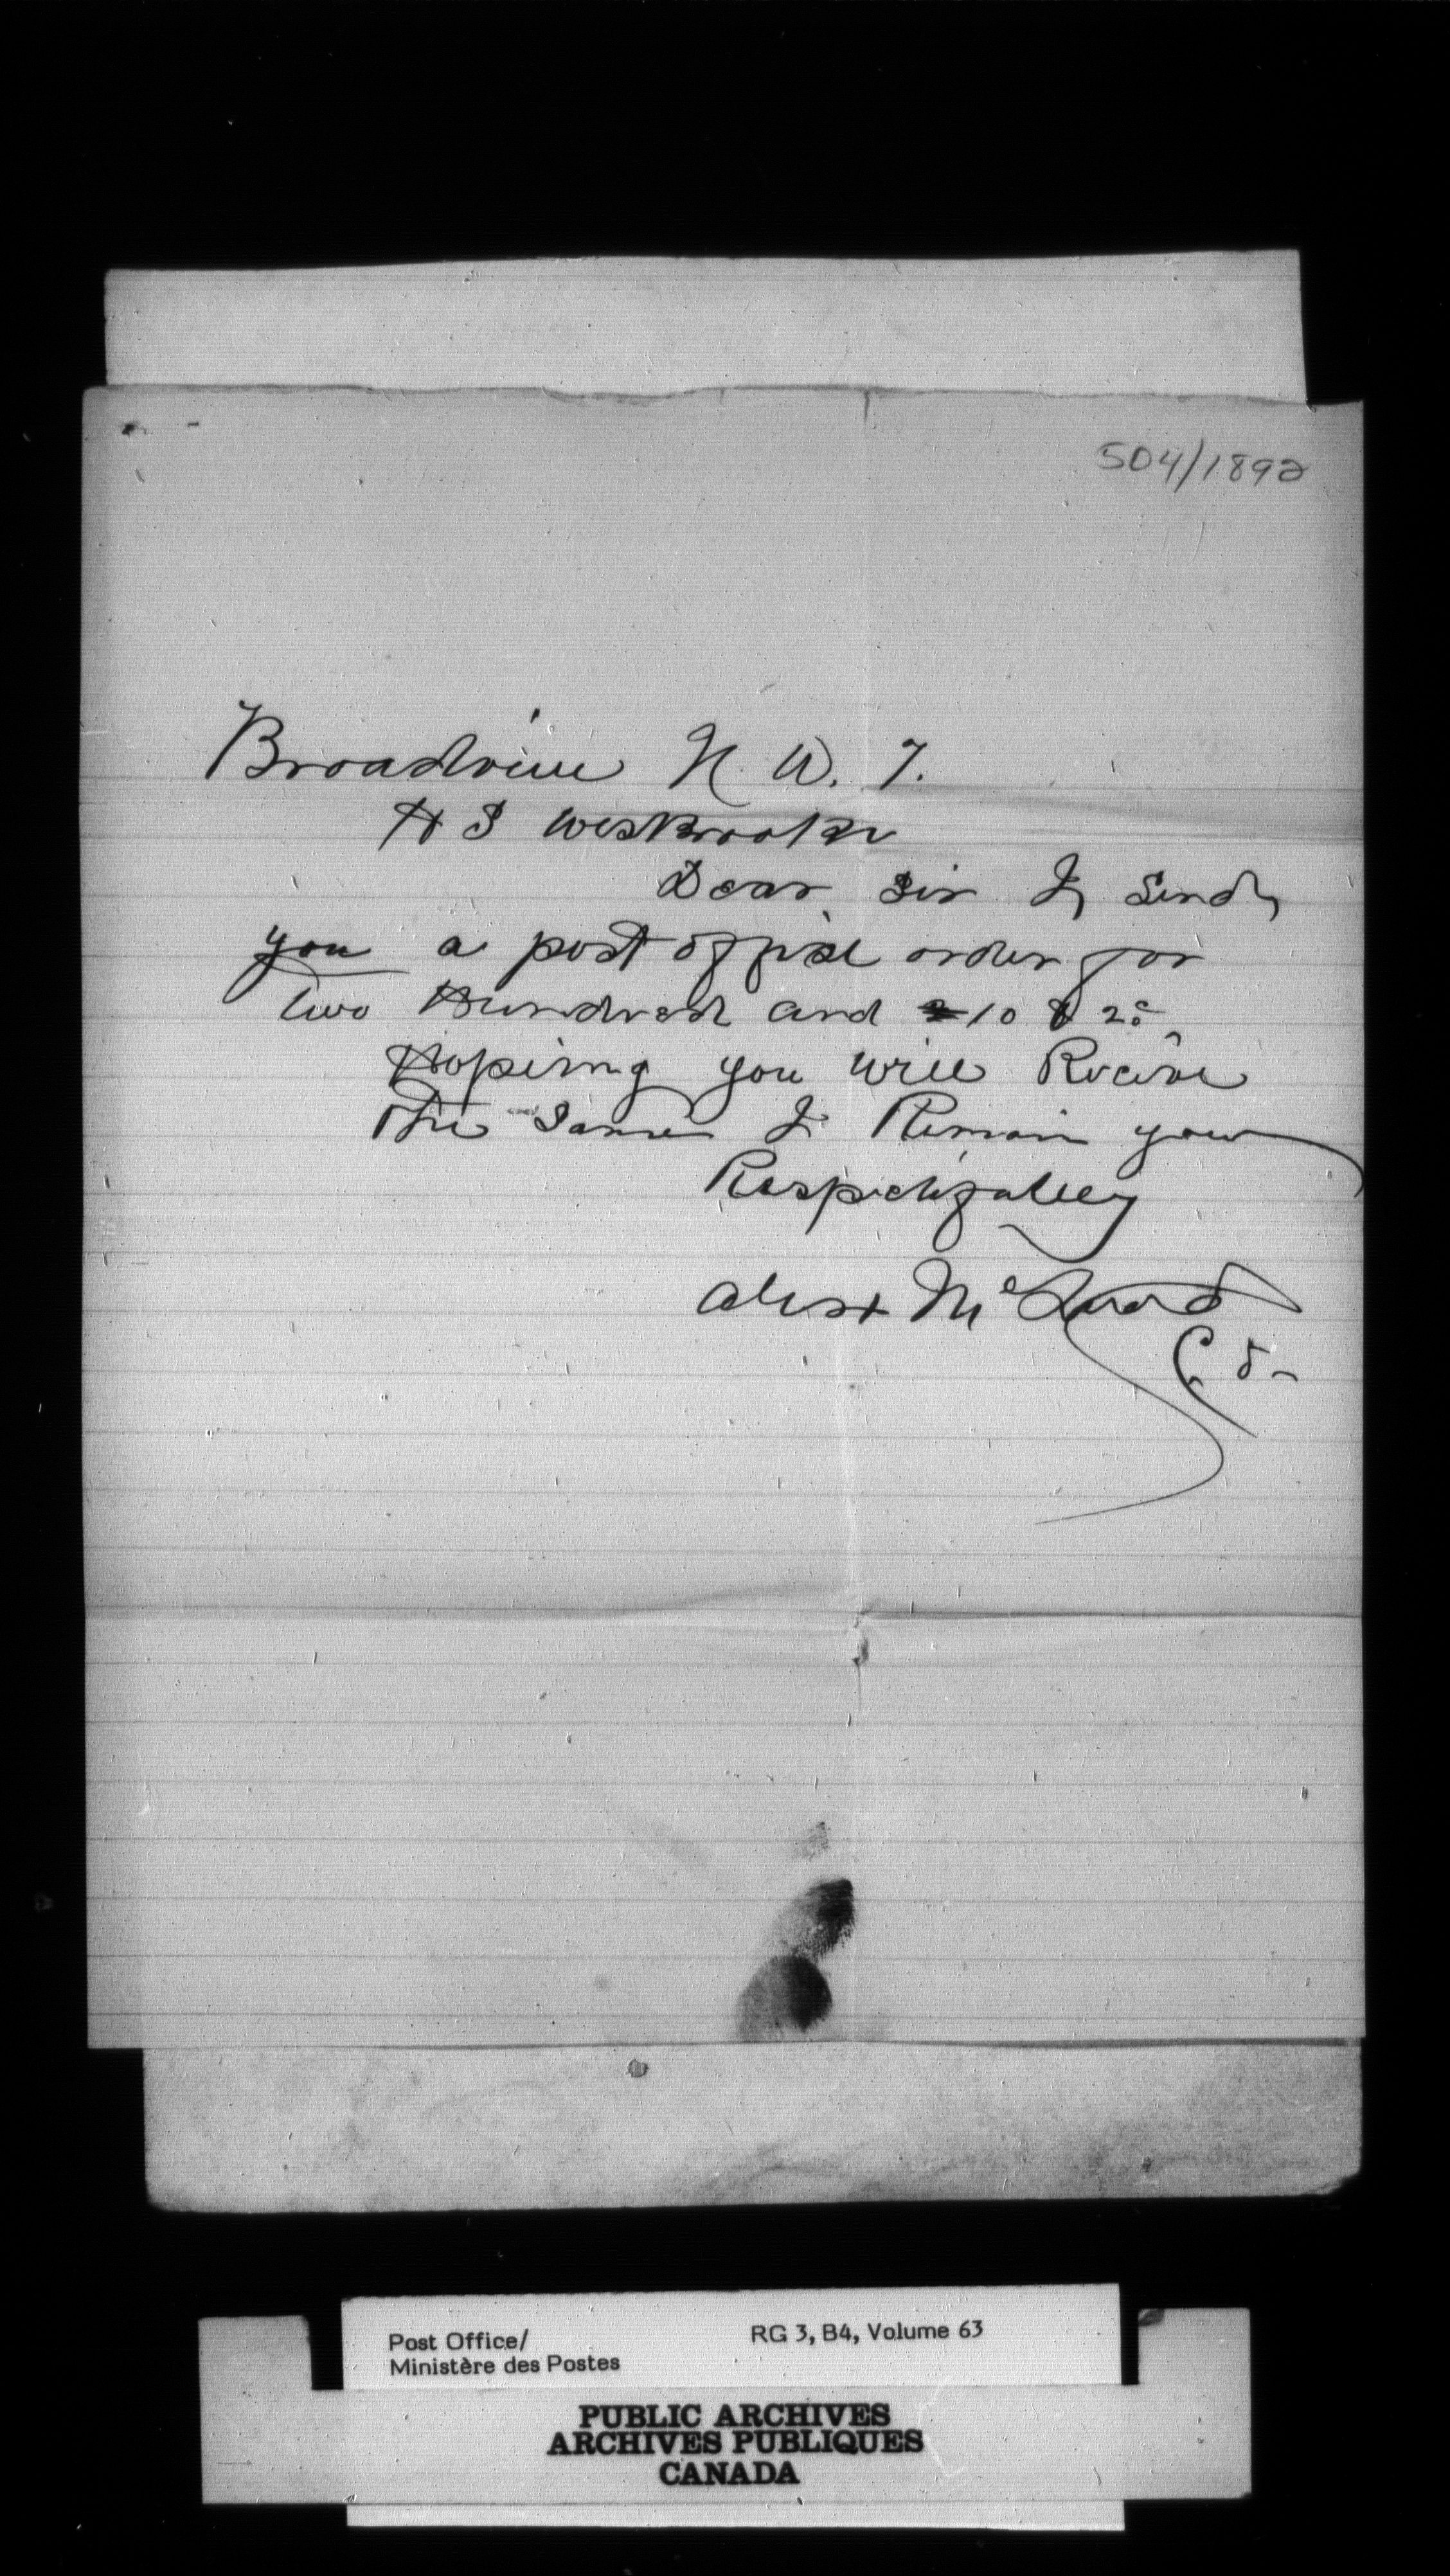 504/1892
Broadview N. W. T.
H S Wesbrook
Dear Sir I Send
you a post offise order for
Two Hundred and 10 & 25
Hopeing you will Recive
The Same I Remain your
Respectfulley
Alex Mc
C. O.
Post Office/ RG 3, B4, Volume 63
Ministère des Postes
PUBLIC ARCHIVES
ARCHIVES PUBLIQUES
CANADA